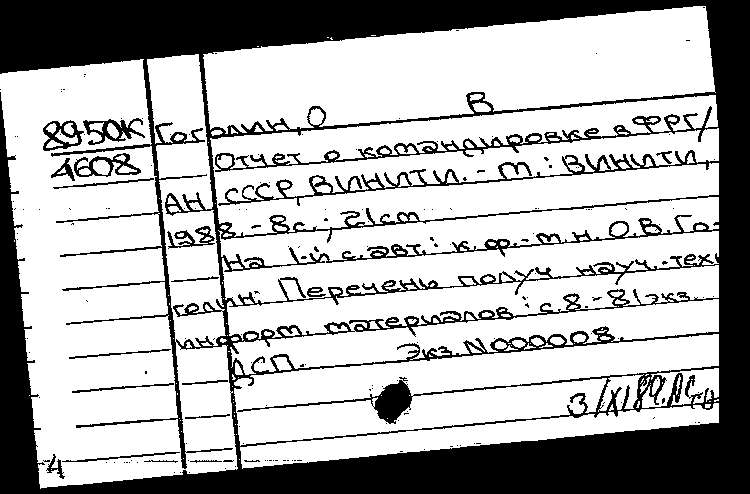 89-50К Гоголин, О В
4608 Отчет о командировке в ФРГ/
АН СССР, ВИНИТИ. - М.: ВИНИТИ,
1988. - 8с.; 21см.
На 1-й с. авт.: к.ф.-м.н. О.В. Го-
голин; Перечень получ. науч.-техн
информ. материалов: с.8. - 81экз.
ДСП. Экз. N000008.
3/XI89.
4